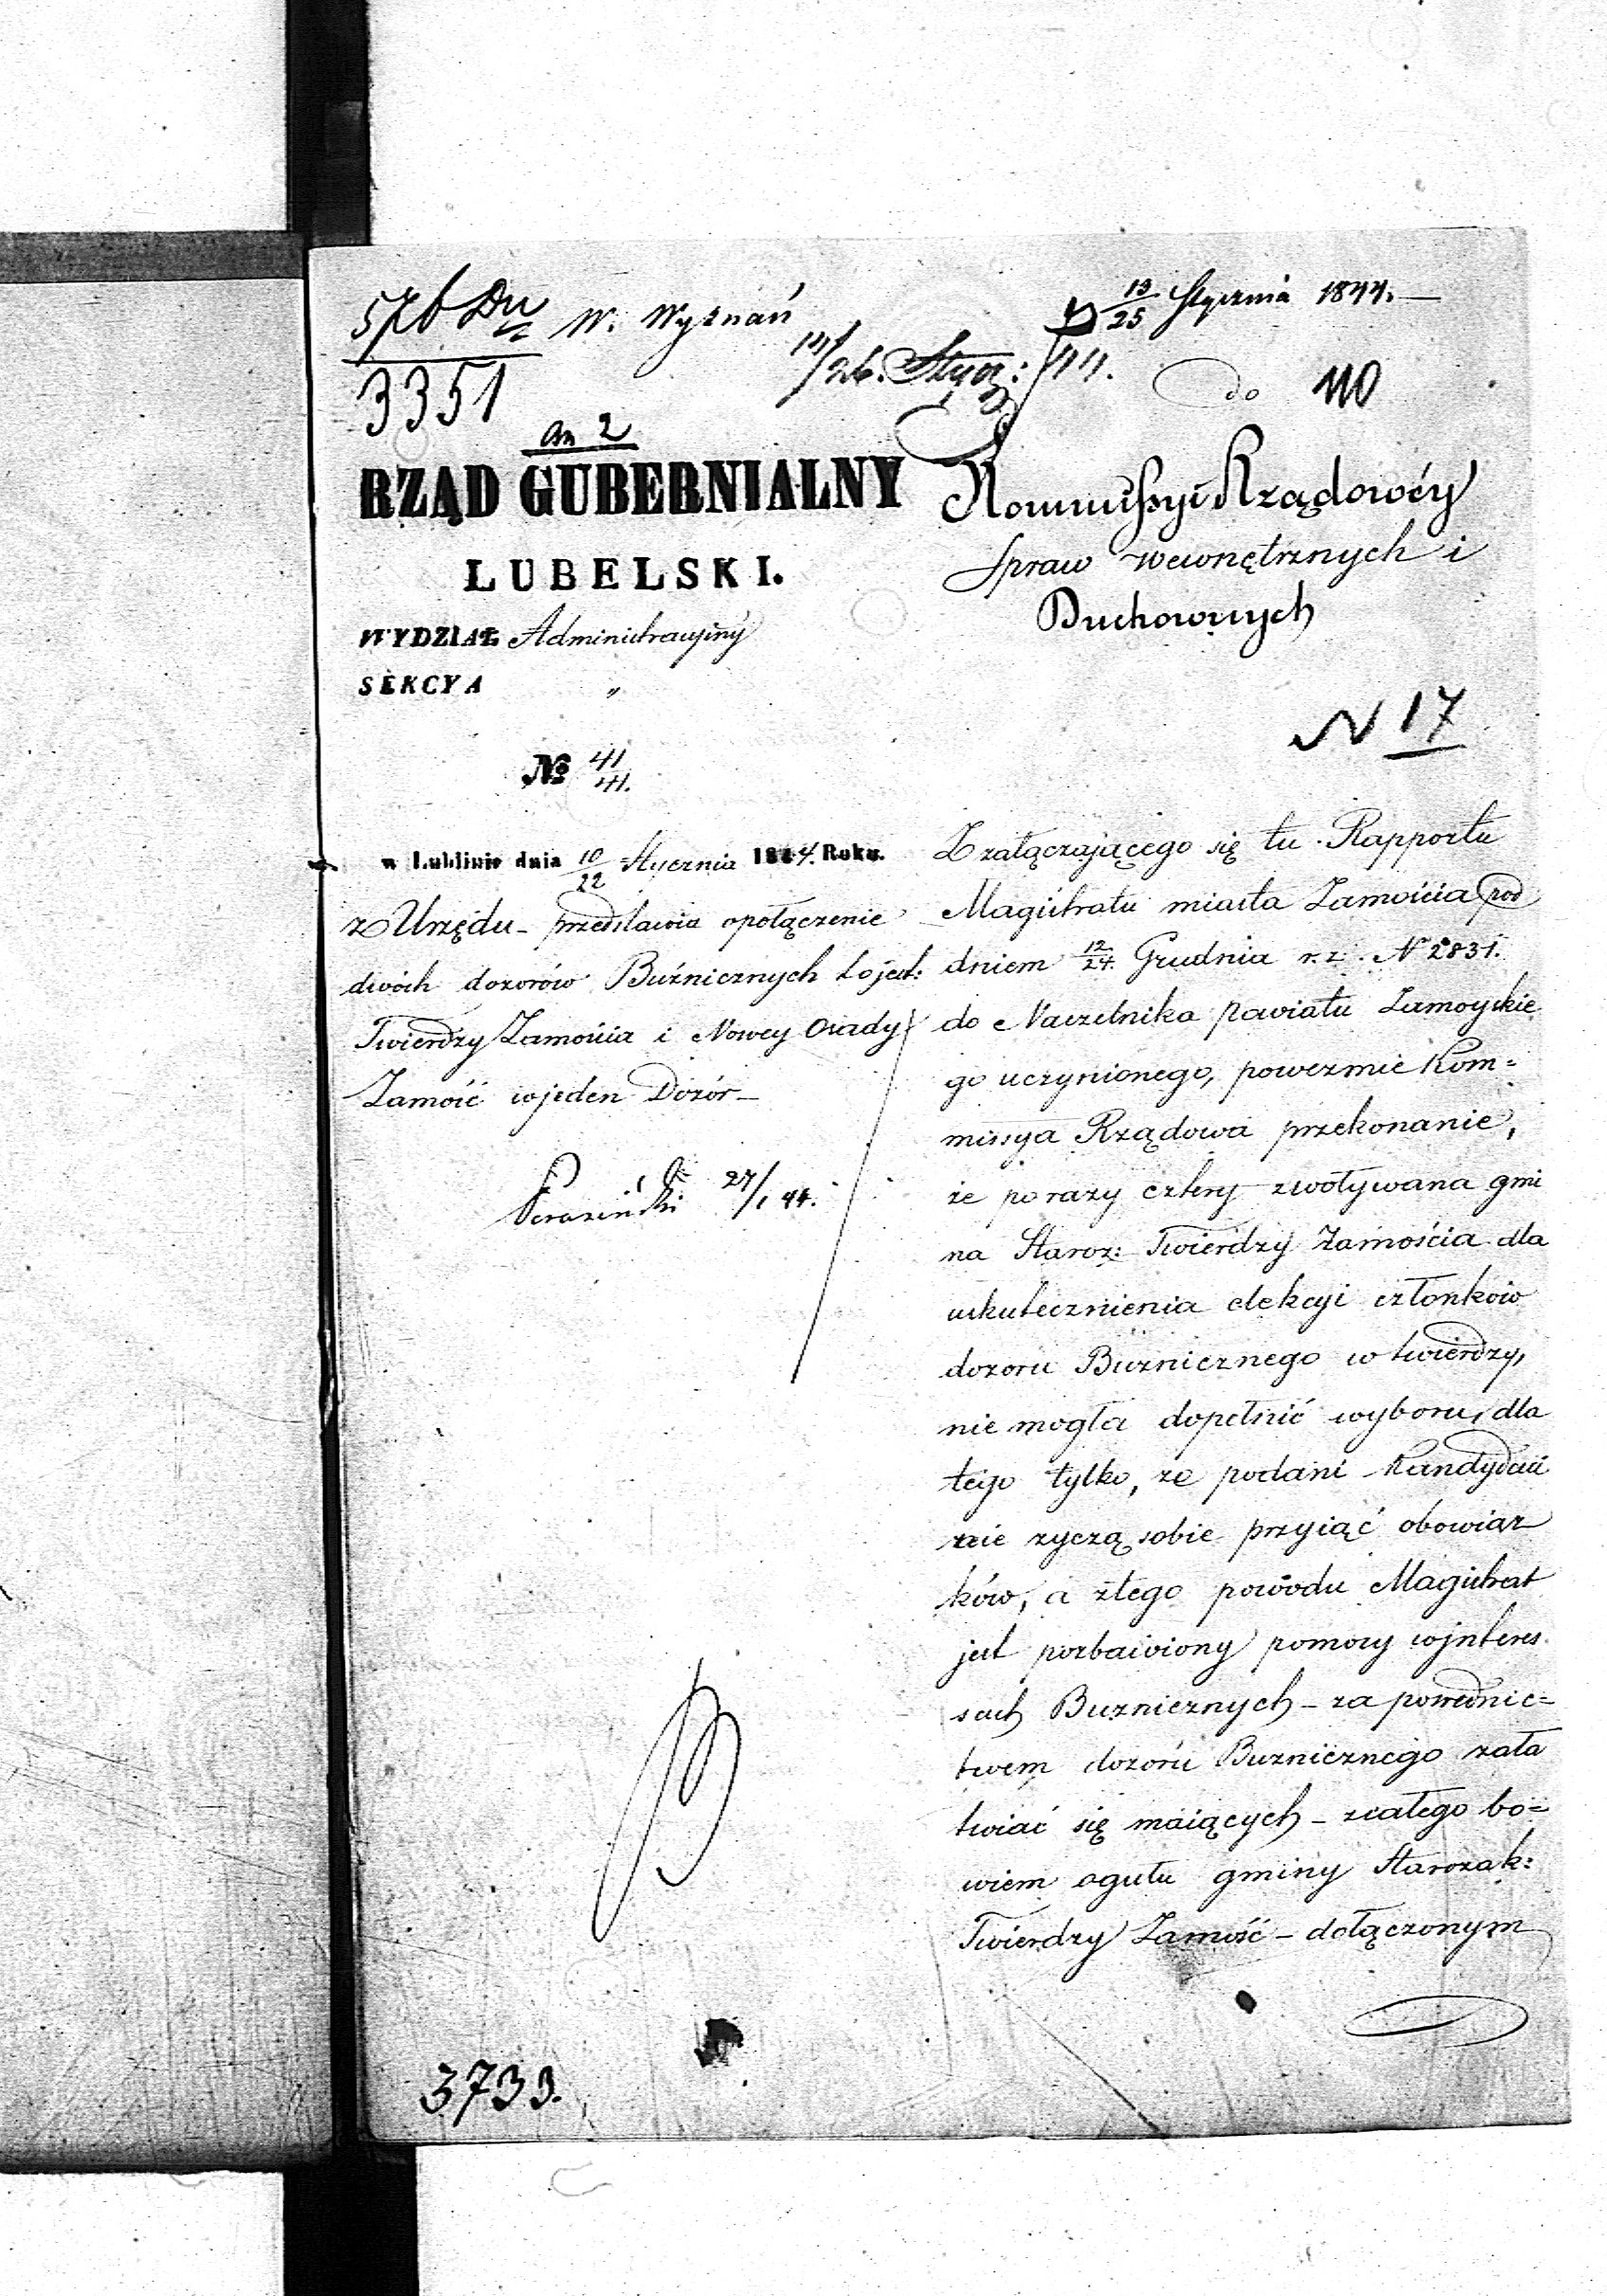 576 Du W. Wyznań
3351
an 2
D 13/25 Stycznia 1844.
14/26. Stycz: 44.
do 110
RZĄD GUBERNIALNY
LUBELSKI.
WYDZIAŁ Administracyiny
SEKCYA „
№ 41/41.
w Lublinie dnia 10/22 Stycznia 1844. Roku.
z Urzędu – przedstawia o połączenie
dwóch dozorów Buźnicznych to jest:
Twierdzy Zamościa i Nowey Osady
Zamość w jeden Dozór –
27/1 44.
3733.
Kommissyi Rządowéy
Spraw Wewnętrznych i
Duchownych
N 17
Z załączającego się tu Rapportu
Magistratu miasta Zamościa pod
dniem 12/24. Grudnia r. z. N 2831.
do Naczelnika powiatu Zamoyskie
go uczynionego, poweźmie Kom=
missya Rządowa przekonanie,
że po razy cztery zwoływana gmi
na Staroz: Twierdzy Zamościa dla
uskutecznienia elekcyi członków
dozoru Buznicznego w twierdzy,
nie mogła dopełnić wyboru, dla
tego tylko, że podani Kandydaci
nie zyczą sobie przyiąć obowiąz
ków, a ztego powodu Magistrat
jest pozbawiony pomocy w jnteres
sach Buznicznych – za pośrednic=
twem dozoru Buznicznego zała
twiać się maiących – z całego bo=
wiem ogułu gminy Starozak:
Twierdzy Zamość – dołączonym